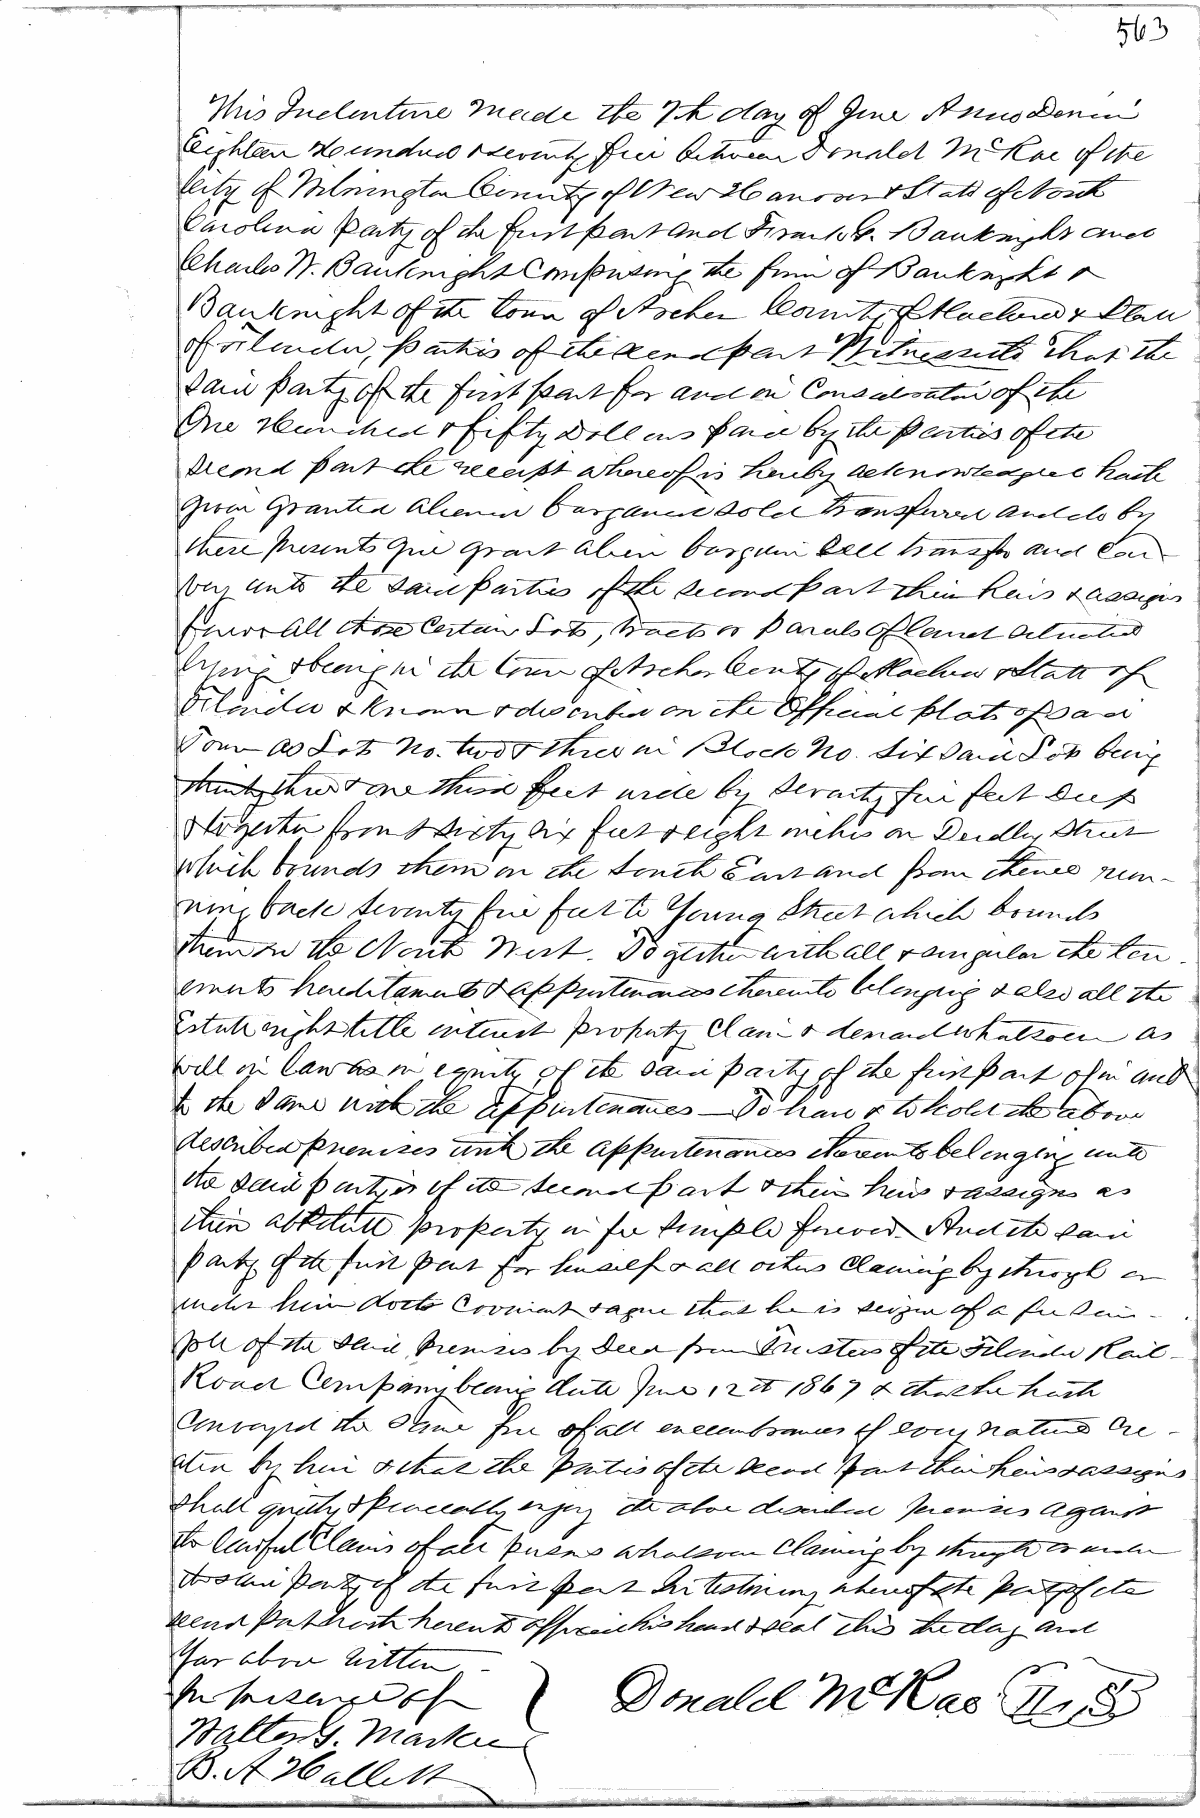 563
This Indenture made the 7th day of June Anno Domini
Eighteen Hundred & seventy five between Donald McRae of the
City of Wilmington County of New Hanover & State of North
Carolina party of the first part and Frank G. Bauknight and
Charles W. Bauknight Composing the firm of Bauknight &
Bauknight of the town of Archer County of Alachua & State
of Florida, parties of the second part Witnesseth that the
said party of the first part for and in Consideration of the
One Hundred & fifty Dollars paid by the parties of the
second part the receipt whereof is hereby acknowledged hath
given granted aliened bargained sold transferred and do by
these presents give grant alien bargain sell transfer and con-
vey unto the said parties of the second part their heirs & assigns
forever All those Certain Lots, tracts or parcels of land situated
lying & being in the town of Archer County of Alachua & State of
Florida & known & described on the Official plats of said
Town as Lots No. two & three in Block No. six said Lots being
thirty three & one third feet wide by seventy five feet deep
& together front sixty six feet & eight inches on Street
which bounds them on the South East and from thence run-
ning back seventy five feet to Young Street which bounds
them on the North West. Together with all & singular the ten
ements hereditaments & appurtenances thereunto belonging & also all the
Estate right title interest property Claim & demand whatsoever as
well in law as in equity of the said party of the first part of in and
to the same with the appurtenances — To have & to hold the above
described premises with the appurtenances thereunto belonging unto
the said parties of the second part & their heirs & assigns as
their absolute property in fee simple forever. And the said
party of the first part for himself & all others Claiming by through or
under him doth Covenant & agree that he is seized of a fee sim-
ple of the said premises by Deed from Trustees of the Florida Rail-
Road Company bearing date June 12th 1867 & that he hath
Conveyed the same free of all encumbrances of every nature cre-
ated by him & that the parties of the second part their heirs & assigns
shall quietly & peaceably enjoy the above described premises against
the lawful Claims of all persons whatsoever Claiming by through or under
the said party of the first part In testimony whereof the party of the
second part hath hereunto affixed his hand & seal this the day and
Year above written -
In presence of
Donald McRae
Walter G.
B. A Hallett